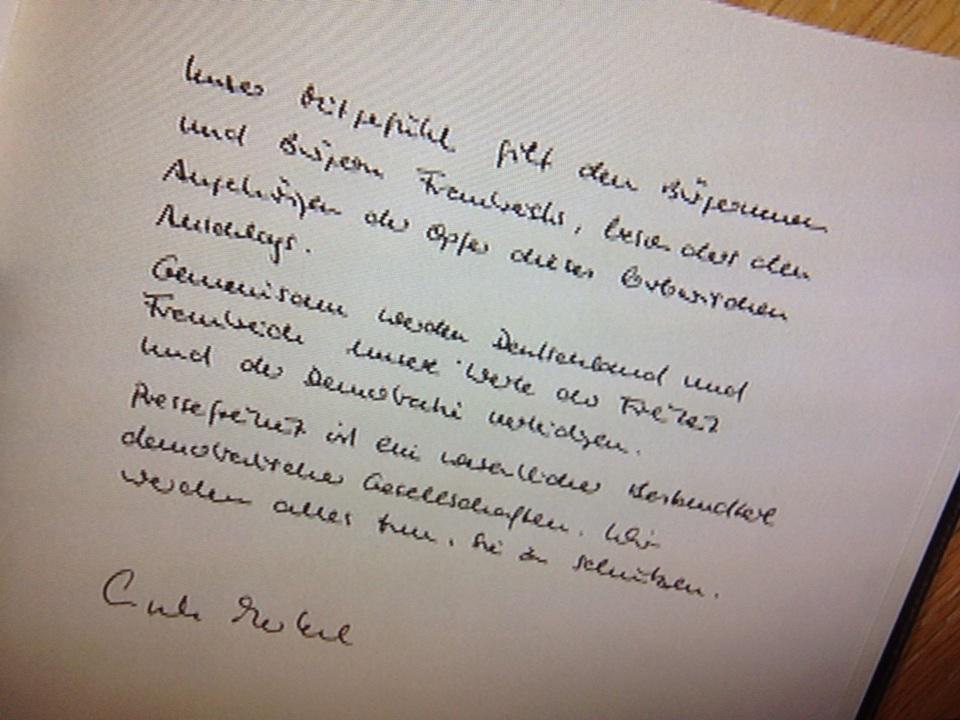 Unser Mitgefühl gilt den Bürgerinnen
und Bürgern Frankreichs, besonders den
Angehörigen der Opfer dieses barbarischen
Anschlags.
Gemeinsam werden Deutschland und
Frankreich unsere Werte der Freiheit
und der Demokratie verteidigen.
Pressefreiheit ist ein wesentlicher Bestandteil
demokratischer Gesellschaften. Wir
werden alles tun, sie zu schützen.
Angela Merkel